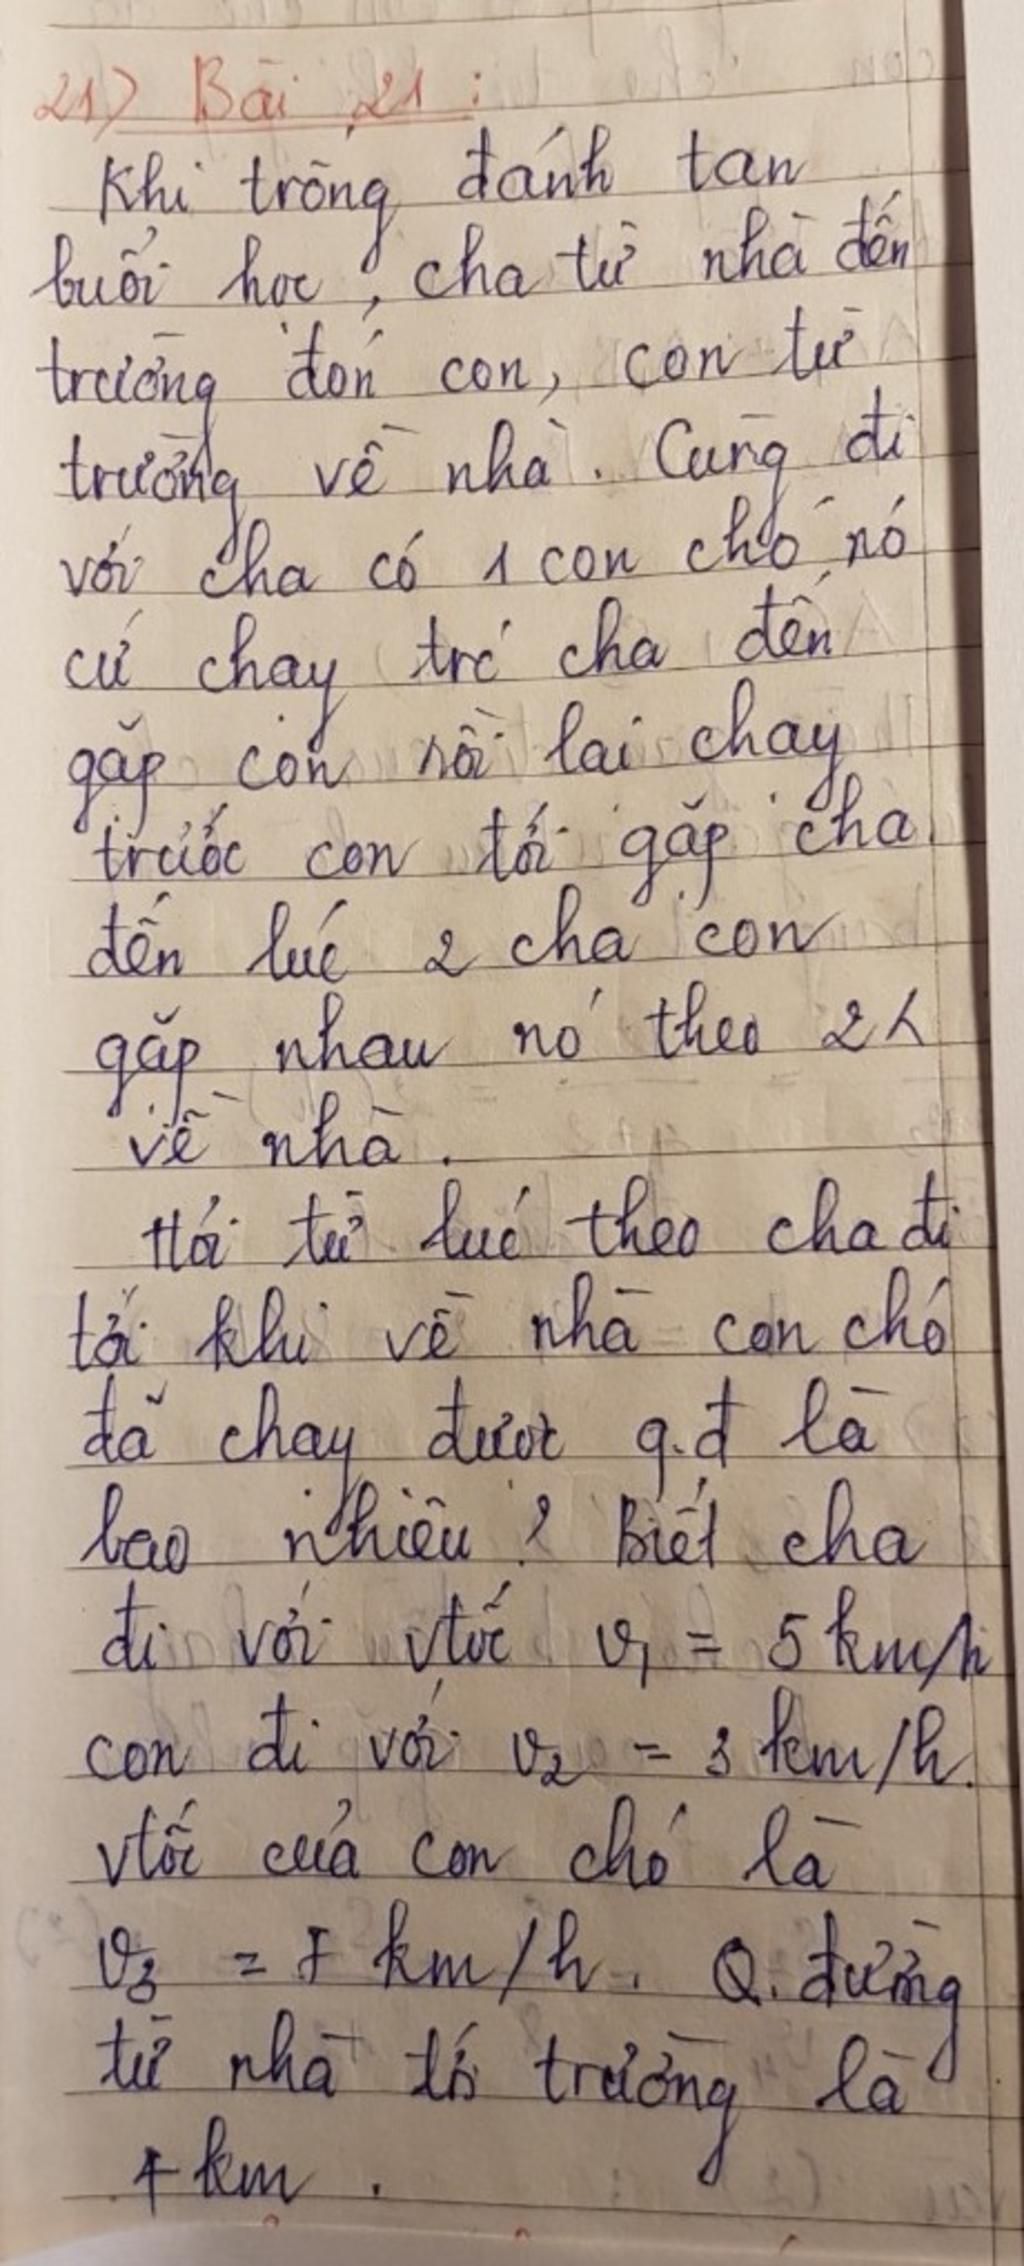 21) Bài 21 :
Khi trống đánh tan
buổi học, cha từ nhà đến
trường đón con, con từ
trường về nhà. Cùng đi
với cha có 1 con chó nó
cứ chạy trc cha đến
gặp con rồi lại chạy
trước con tới gặp cha
đến lúc 2 cha con
gặp nhau nó theo 2
về nhà.
Hỏi từ lúc theo cha đi
tới khi về nhà con chó
đã chạy được q.đ là
bao nhiêu ? Biết cha
đi với vtốc v₁ = 5 km/h
con đi với v₂ = 3 km/h.
vtốc của con chó là
v₃ = km/h. Q. đường
từ nhà tới trường là
km.